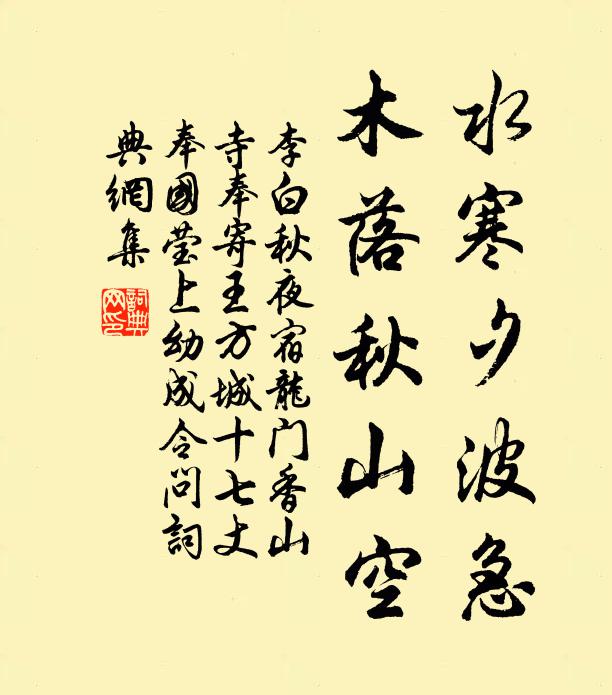 水寒夕波急
木落秋山空
李白秋夜宿龍门香山
寺奉寄王方城十七丈
奉國瑩上幼成令问詞
典網集
詞典
网印